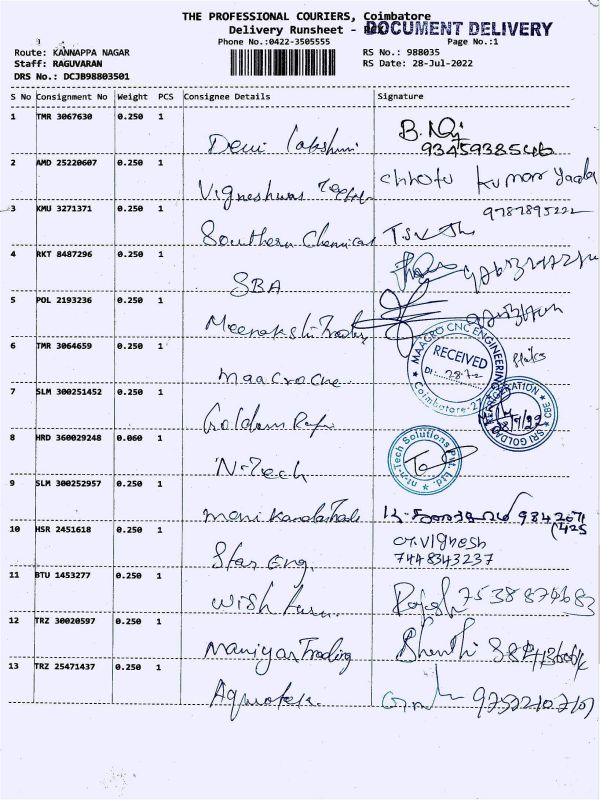 THE PROFESSIONAL COURIERS, Coimbatore
Delivery Runsheet - DOCUMENT DELIVERY
Phone No.:0422-3505555
Page No.:1
Route: KANNAPPA NAGAR
RS No.: 988035
Staff: RAGUVARAN
RS Date: 28-Jul-2022
DRS No.: DCJB98803501
S No Consignment No Weight PCS Consignee Details Signature
1 TMR 3067630 0.250 1
Devi Lakshmi
9345938546
2 AMD 25220607 0.250 1
Vigneshwar
chhotu Kumar Yadav
3 KMU 3271371 0.250 1
9787895222
Southern Chemicas
4 RKT 8487296 0.250 1
SBA
5 POL 2193236 0.250 1
Meenakshi Trading
6 TMR 3064659 0.250 1
MAAGRO CNC ENGINEERING
RECEIVED
Dt:.... 28-7-
Coimbatore
Maacro Cnc
7 SLM 300251452 0.250 1
Goldam Refri
SRI GOLDAM REFRIGERATION ★ CBE ★
8 HRD 360029248 0.060 1
N-Tech
n-Tech Solutions Pvt. Ltd.
9 SLM 300252957 0.250 1
Mani
10 HSR 2451618 0.250 1
Star Eng.
Vignesh
7448343237
11 BTU 1453277 0.250 1
Wish
Rajesh 7538874683
12 TRZ 30020597 0.250 1
Maniyar Trading
Shenthi
13 TRZ 25471437 0.250 1
Aquatek